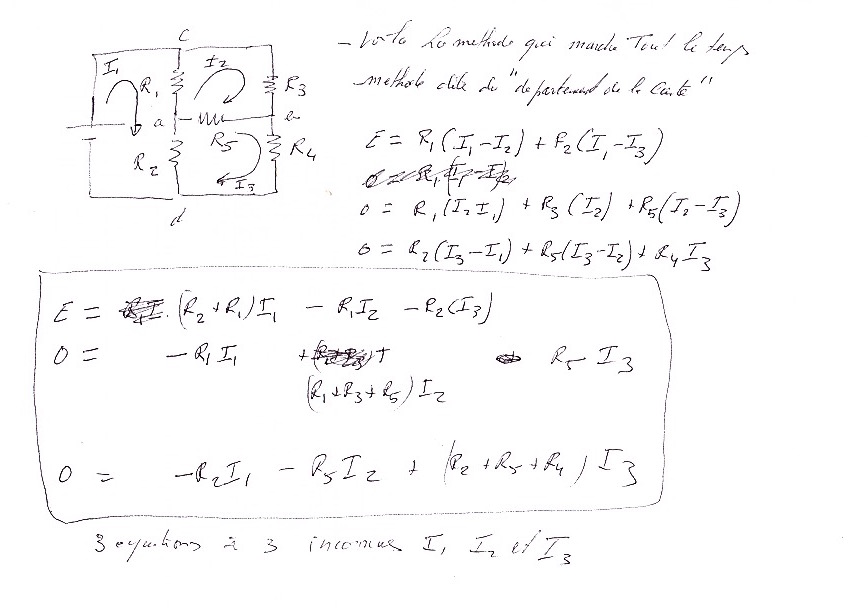 C
I1 I2
R1 R3
a
R5
R2 R4
I3
d
– Voila la methode qui marche Tout le temps
methode dite du "departement de la carte"
E = R1(I1–I2) + R2(I1–I3)
0 = R1(I2 I1) + R3(I2) + R5(I2–I3)
0 = R2(I3–I1) + R5(I3–I2) + R4 I3
E = (R2+R1)I1 – R1I2 – R2(I3)
0 = – R1 I1 + R5 I3
(R1+R3+R5)I2
0 = –R2I1 – R5I2 + (R2+R5+R4)I3
3 equations à 3 inconnues I1 I2 et I3